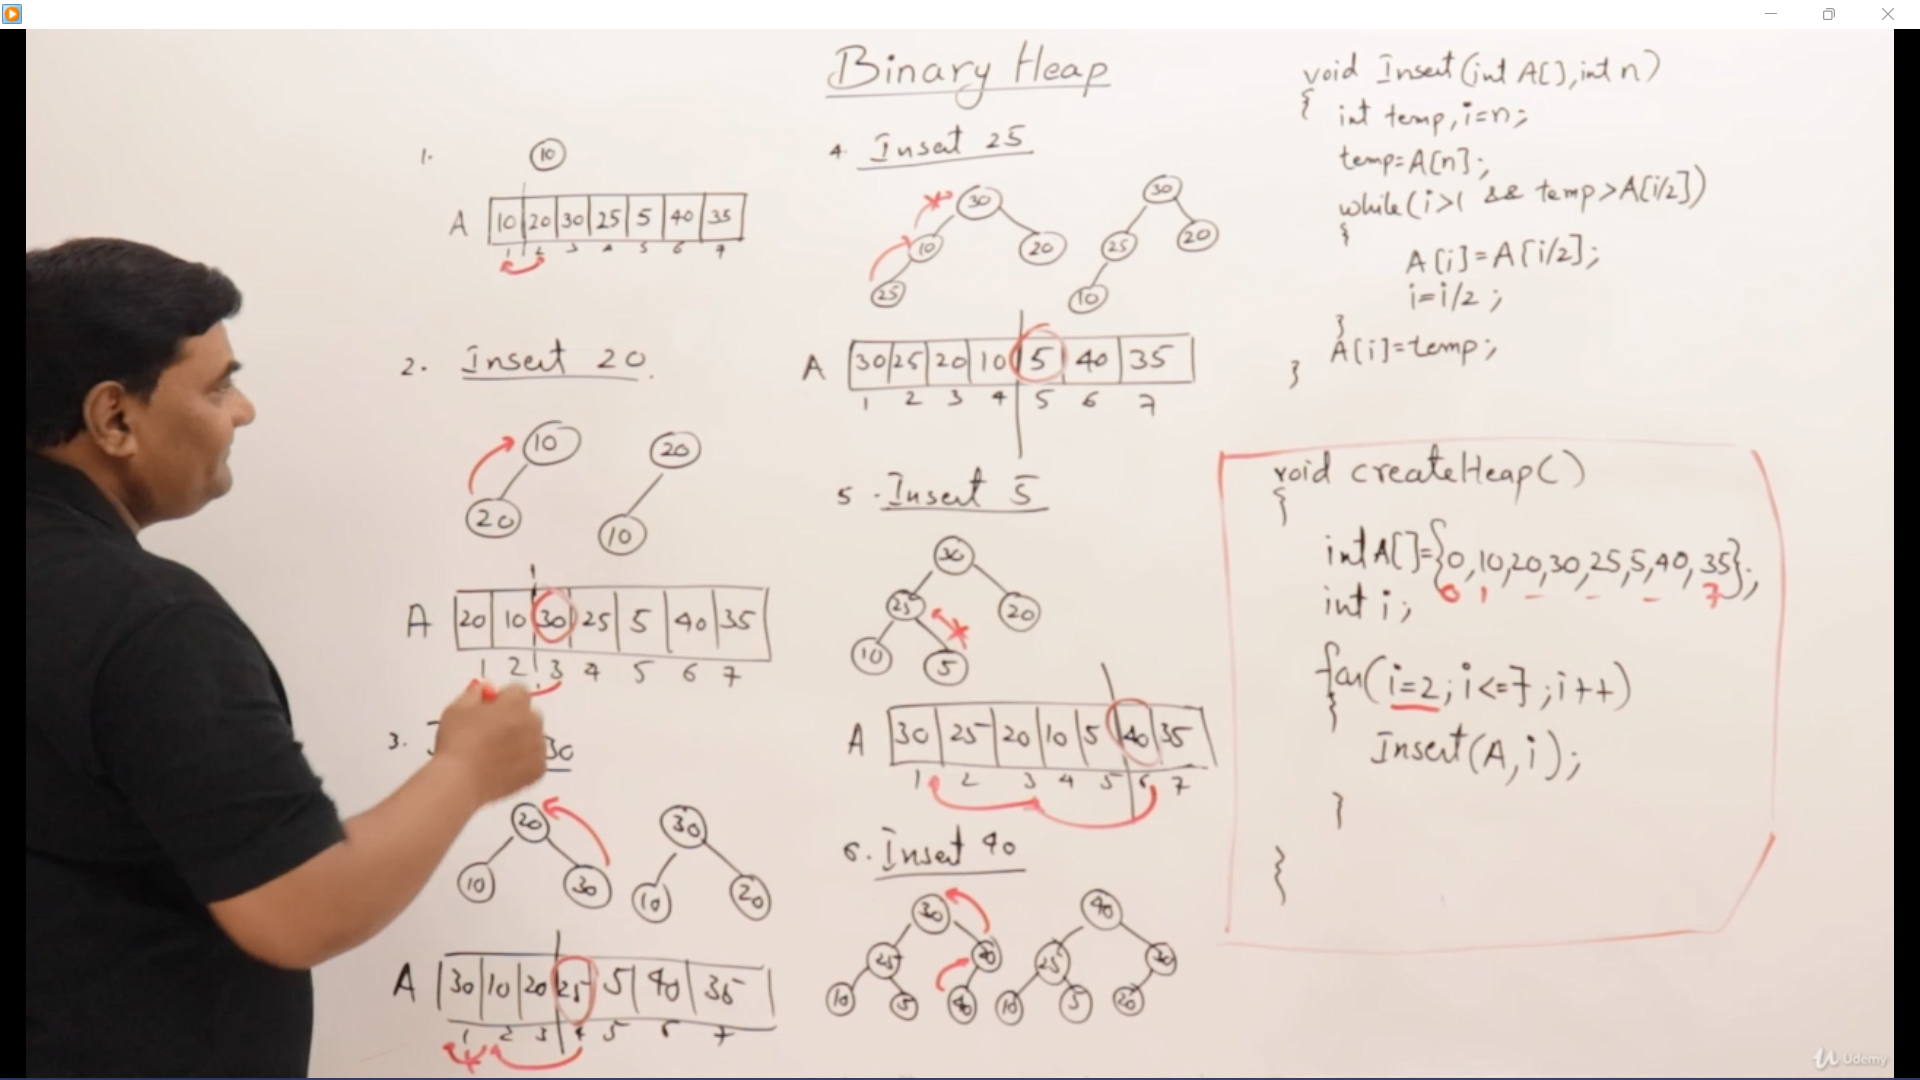 Binary Heap
1.
10
A 10 20 30 25 5 40 35
1 2 3 4 5 6 7
2. Insert 20.
10
20
20
10
A 20 10 30 25 5 40 35
1 2 3 4 5 6 7
3. 30
20
10 30
30
10 20
A 30 10 20 25 5 40 35
1 2 3 4 5 6 7
4. Insert 25
30
10 20
25
30
25 20
10
A 30 25 20 10 5 40 35
1 2 3 4 5 6 7
5. Insert 5
30
25 20
10 5
A 30 25 20 10 5 40 35
1 2 3 4 5 6 7
6. Insert 40
30
25 20
10 5 40
40
25 30
10 5 20
void Insert(int A[], int n)
{ int temp, i=n;
temp=A[n];
while(i>1 && temp>A[i/2])
{
A[i]=A[i/2];
i=i/2;
}
A[i]=temp;
}
void createHeap()
{
int A[]={0,10,20,30,25,5,40,35};
0 1 7
int i;
for(i=2;i<=7;i++)
{
Insert(A,i);
}
}
Udemy